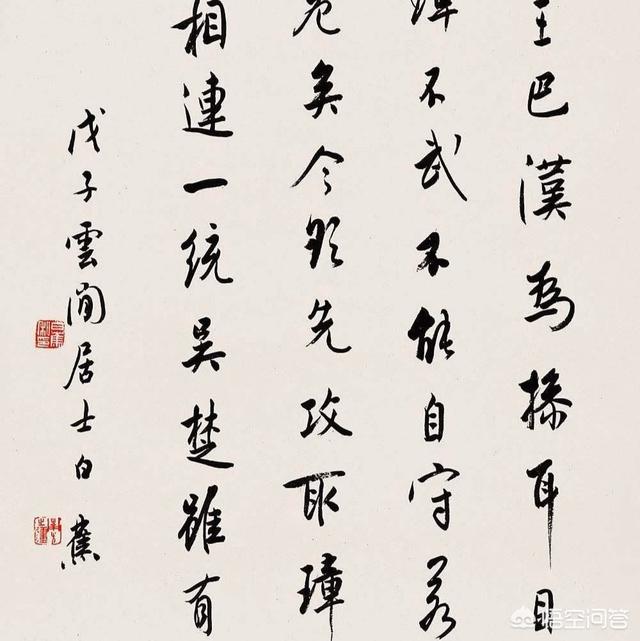 王巴漢為操耳目
璋不武不能自守若
危矣今欲先攻取璋
相連一統吳楚雖有
戊子雲間居士白蕉
悟空问答